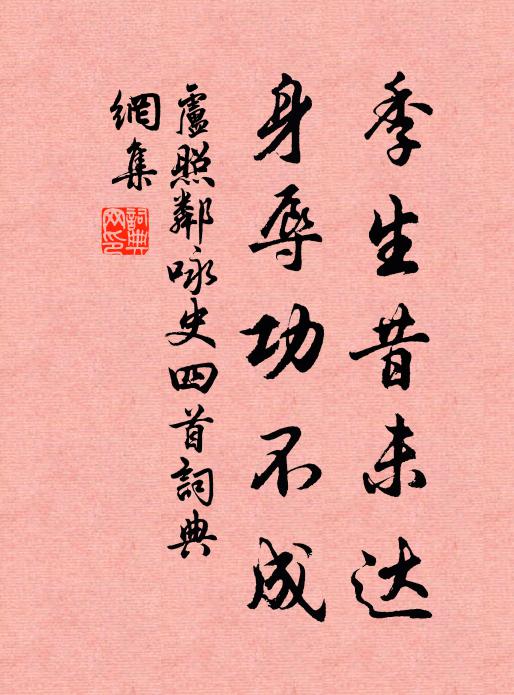 季生昔未达
身辱功不成
盧照鄰咏史四首詞典
網集
詞典網印